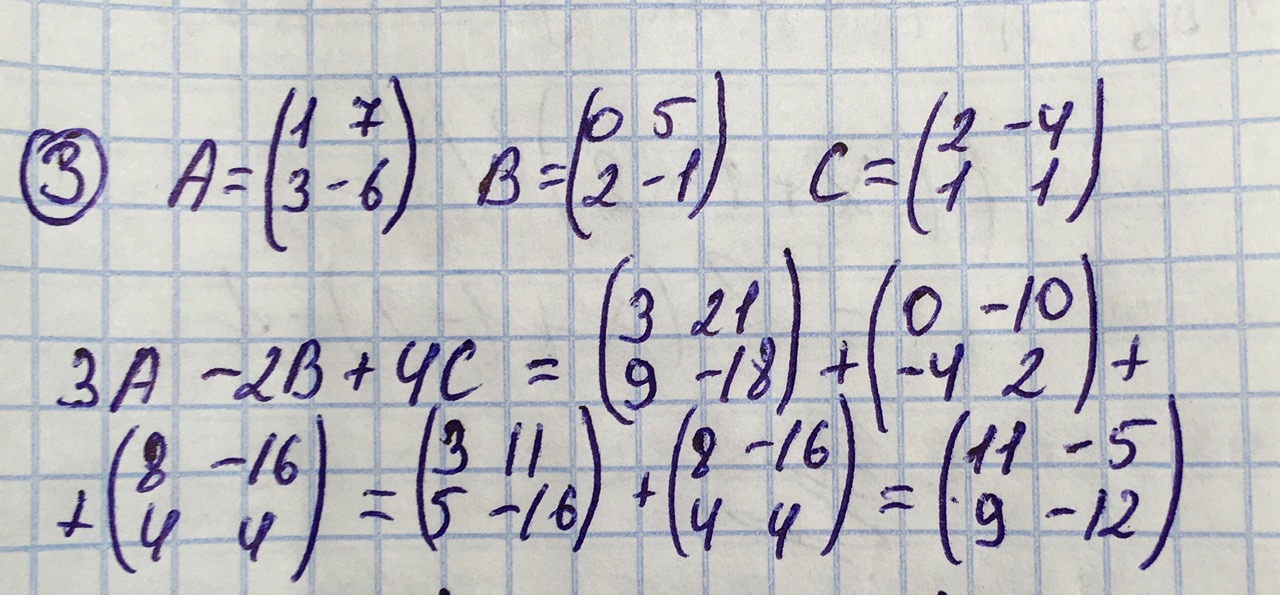 ③ A = (1 7 / 3 -6) B = (0 5 / 2 -1) C = (2 -4 / 1 1)
3A - 2B + 4C = (3 21 / 9 -18) + (0 -10 / -4 2) +
+ (8 -16 / 4 4) = (3 11 / 5 -16) + (8 -16 / 4 4) = (11 -5 / 9 -12)